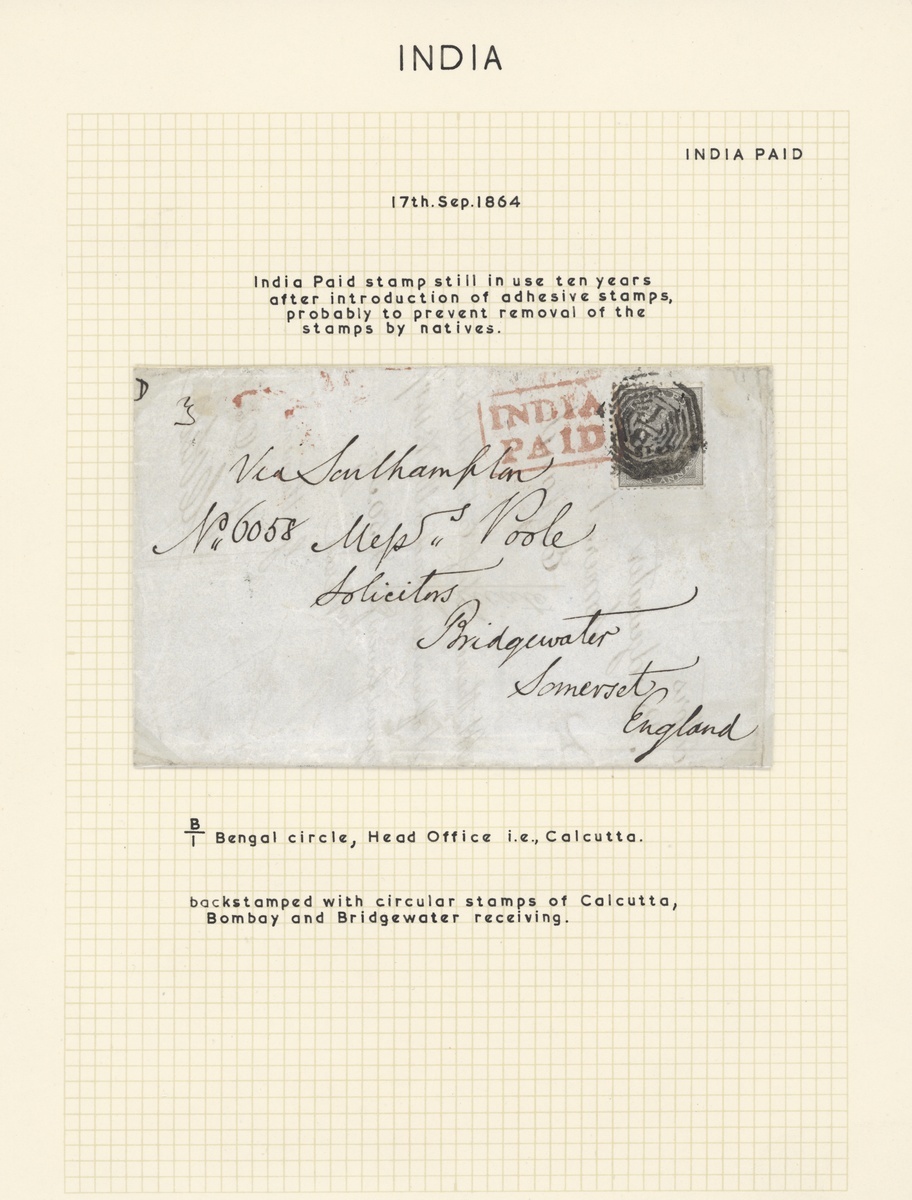 INDIA
INDIA PAID
17th.Sep.1864
India Paid stamp still in use ten years
after introduction of adhesive stamps,
probably to prevent removal of the
stamps by natives.
D
3
INDIA
PAID
Via Southampton
No. 6058 Messrs Poole
Solicitors
Bridgewater
Somerset
England
B
1 Bengal circle, Head Office i.e., Calcutta.
backstamped with circular stamps of Calcutta,
Bombay and Bridgewater receiving.